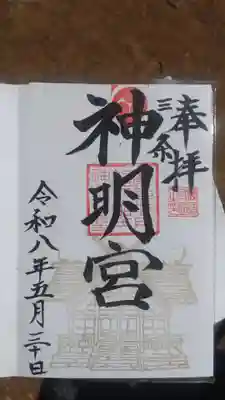 奉拝
三条
神明宮
令和八年五月二十日